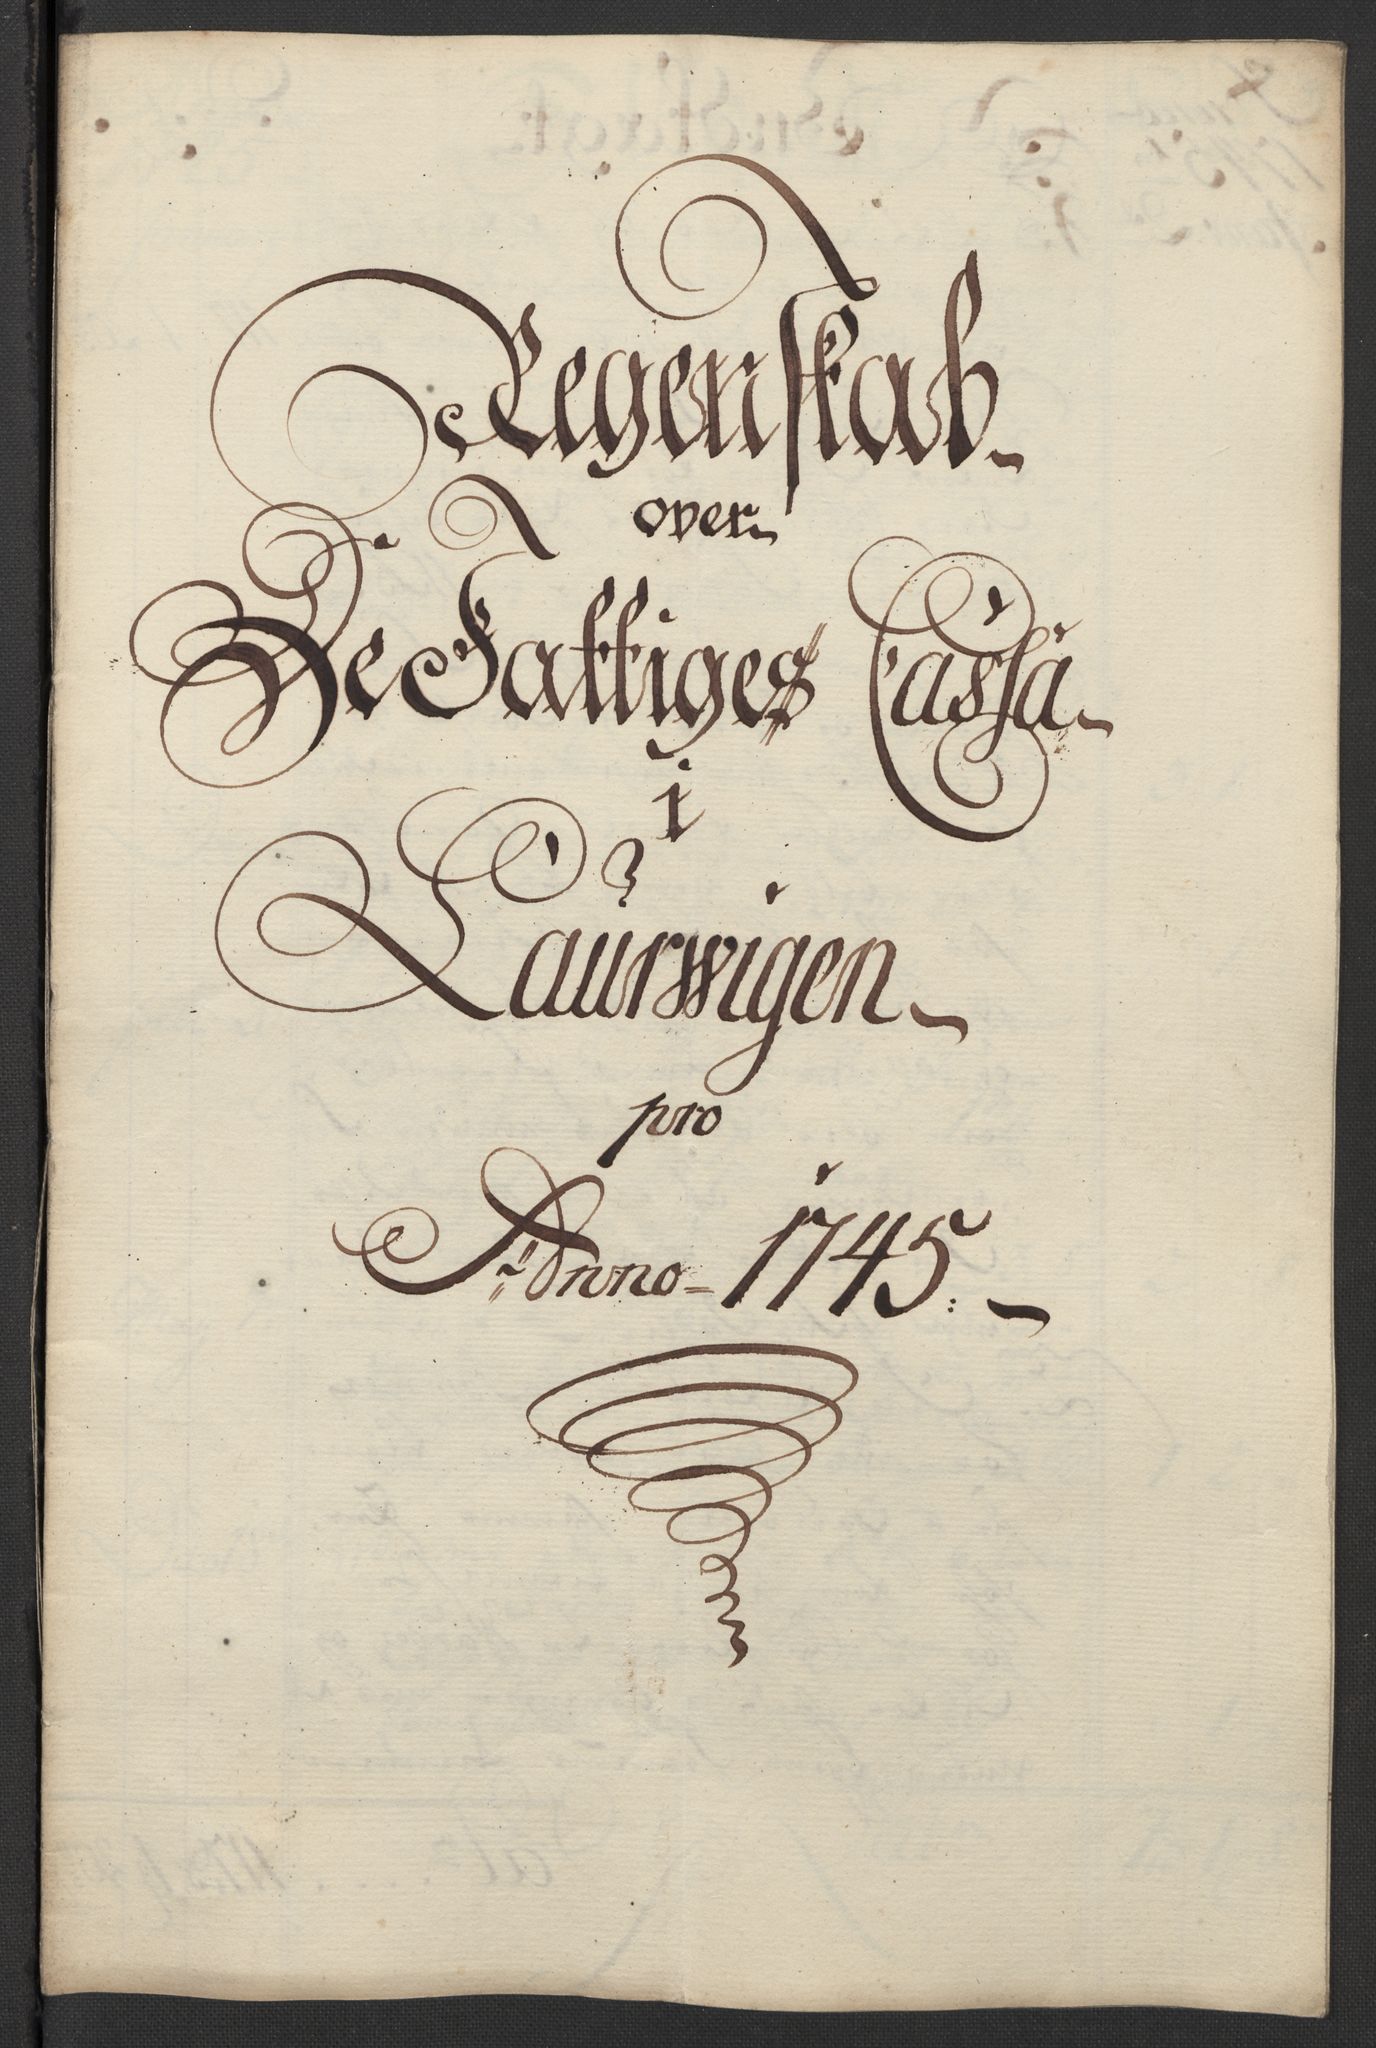 Regenskab
over
De Fattiges Cassa
i
Laurwigen
pro
A: Anno 1745.